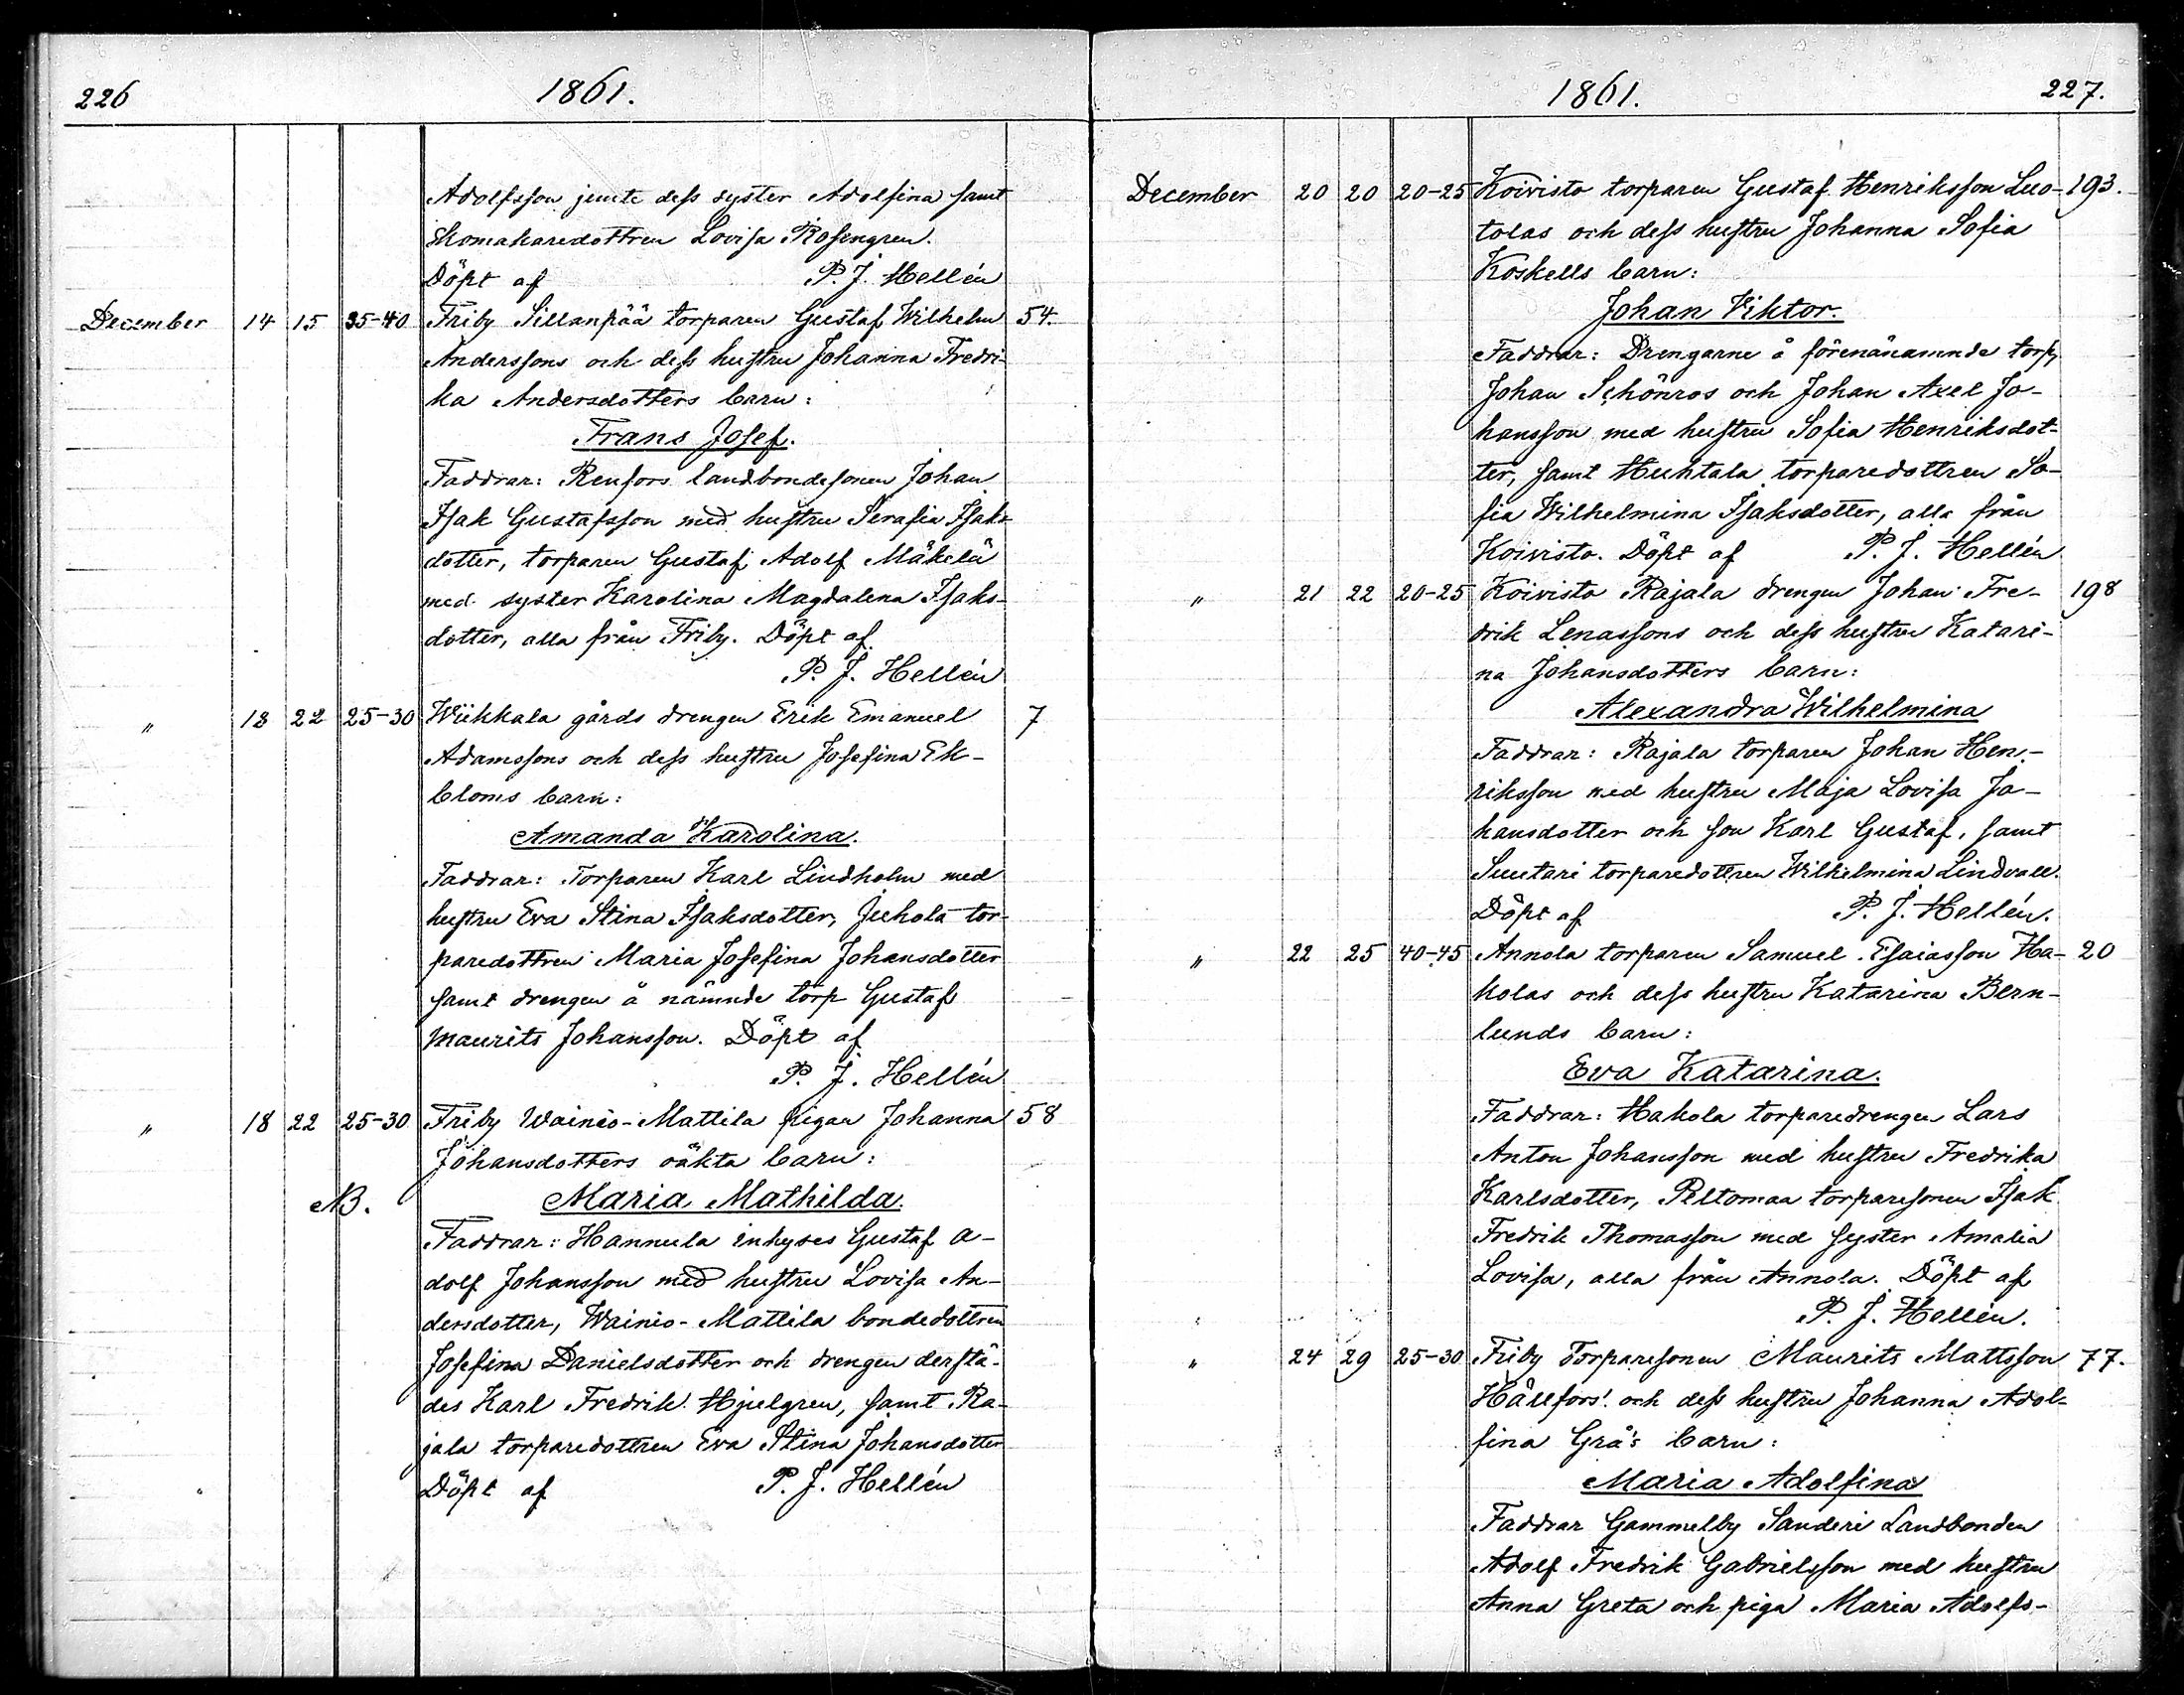 226
1861.
Adolfsson jemte dess syster Adolfina samt
skomakaredottren Lovisa Rosengren.
Döpt af P. J. Hellén
December 14 15 35-40 Friby Sillanpää torparen Gustaf Wilhelm 54.
Anderssons och dess hustru Johanna Fredri-
ka Andersdotters barn:
Frans Josef.
Faddrar: Renfors landbondesonen Johan
Isak Gustafsson med hustru Serafia Isaks-
dotter, torparen Gustaf Adolf Mäkelä
med syster Karolina Magdalena Isaks-
dotter, alla från Friby. Döpt af
P. J. Hellén
" 18 22 25-30 Wiikkala gårds drengen Erik Emanuel 7
Adamssons och dess hustru Josefina Ek-
bloms barn:
Amanda Karolina.
Faddrar: Torparen Karl Lindholm med
hustru Eva Stina Isaksdotter, Juhola tor-
paredottren Maria Josefina Johansdotter
samt drengen å nämnde torp Gustaf
Maurits Johansson. Döpt af
P. J. Hellén
" 18 22 25-30 Friby Wainio-Mattila pigan Johanna 58
Johansdotters oäkta barn:
NB. Maria Mathilda.
Faddrar: Hannula inhyses Gustaf A-
dolf Johansson med hustru Lovisa An-
dersdotter, Wainio-Mattila bondedottren
Josefina Danielsdotter och drengen derstä-
des Karl Fredrik Hjelgren, samt Ra-
jala torparedottren Eva Stina Johansdotter
Döpt af P. J. Hellén
1861.
227.
December 20 20 20-25 Koivisto torparen Gustaf Henriksson Luo- 193.
tolas och dess hustru Johanna Sofia
Koskells barn:
Johan Viktor.
Faddrar: Drengarne å förenämnde torp
Johan Schönros och Johan Axel Jo-
hansson med hustru Sofia Henriksdot-
ter, samt Huhtala torparedottren So-
fia Wilhelmina Isaksdotter, alla från
Koivisto. Döpt af P. J. Hellén
" 21 22 20-25 Koivisto Rajala drengen Johan Fre- 198
drik Lenassons och dess hustru Katari-
na Johansdotters barn:
Alexandra Wilhelmina
Faddrar: Rajala torparen Johan Hen-
riksson med hustru Maja Lovisa Jo-
hansdotter och son Karl Gustaf, samt
Suutari torparedottren Wilhelmina Lindvall.
Döpt af P. J. Hellén.
" 22 25 40-45 Annola torparen Samuel Esaiasson Ha- 20
kolas och dess hustru Katarina Bern-
lunds barn:
Eva Katarina.
Faddrar: Hakola torparedrengen Lars
Anton Johansson med hustru Fredrika
Karlsdotter, Peltomaa torparesonen Isak
Fredrik Thomasson med syster Amalia
Lovisa, alla från Annola. Döpt af
P. J. Hellén.
" 24 29 25-30 Friby Torparesonen Maurits Mattsson 77.
Hällfors' och dess hustru Johanna Adol-
fina Grå's barn:
Maria Adolfina
Faddrar Gammelby Sanderi Landbonden
Adolf Fredrik Gabrielsson med hustru
Anna Greta och piga Maria Adolfs-